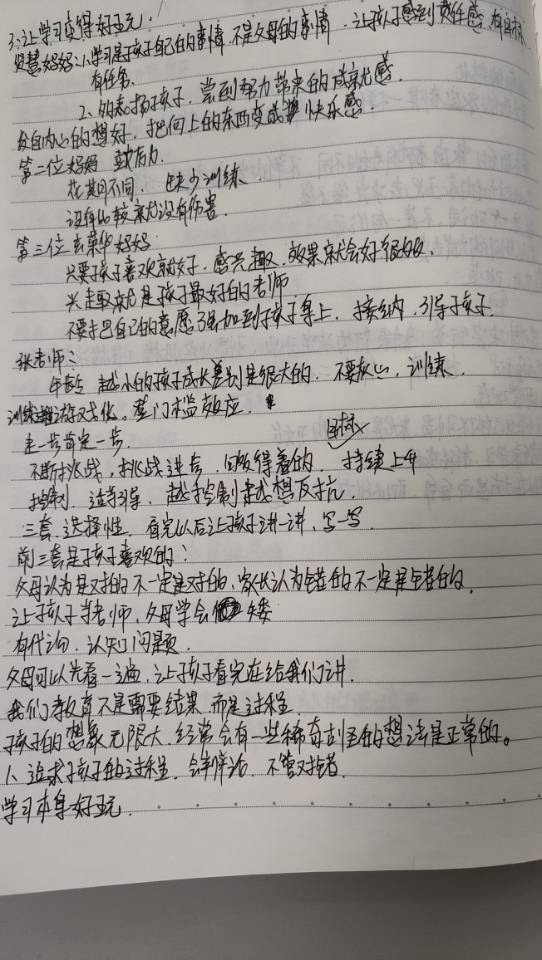 3、让学习变得好玩.
贤慧妈妈:1、学习是孩子自己的事情,不是父母的事情,让孩子感到责任感,有目标
有任务.
2、的表扬孩子,尝到努力带来的成就感.
发自内心的想好,把向上的东西变成快乐感.
第二位妈妈
花期不同,缺少训练.
没有比较就没有伤害.
第三位 荣华妈妈
只要孩子喜欢就好,感兴趣,效果就会好很好.
兴趣就是孩子最好的老师
不要把自己的意愿强加到孩子身上,接纳,引导孩子.
张老师:
年龄越小的孩子成长差别是很大的.不要执心,训练.
训练游戏化,登门槛效应.
走一步肯定一步 目标
不断挑战,挑战进去,回收得着的.持续上升
控制,边引导,越控制越想反抗.
三套,选择性,看完以后让孩子讲一讲,写一写
前三套是孩子喜欢的:
父母认为是对的不一定是对的,家长认为错的不一定是错的.
让孩子当老师,父母学会矮
有代沟,认知问题.
父母可以先看一遍,让孩子看完在给我们讲.
我们教育不是需要结果而是过程
孩子的想象无限大,经常会有一些稀奇古怪的想法是正常的。
1、追求孩子的过程,会讲话,不管对错.
学习本身好玩.